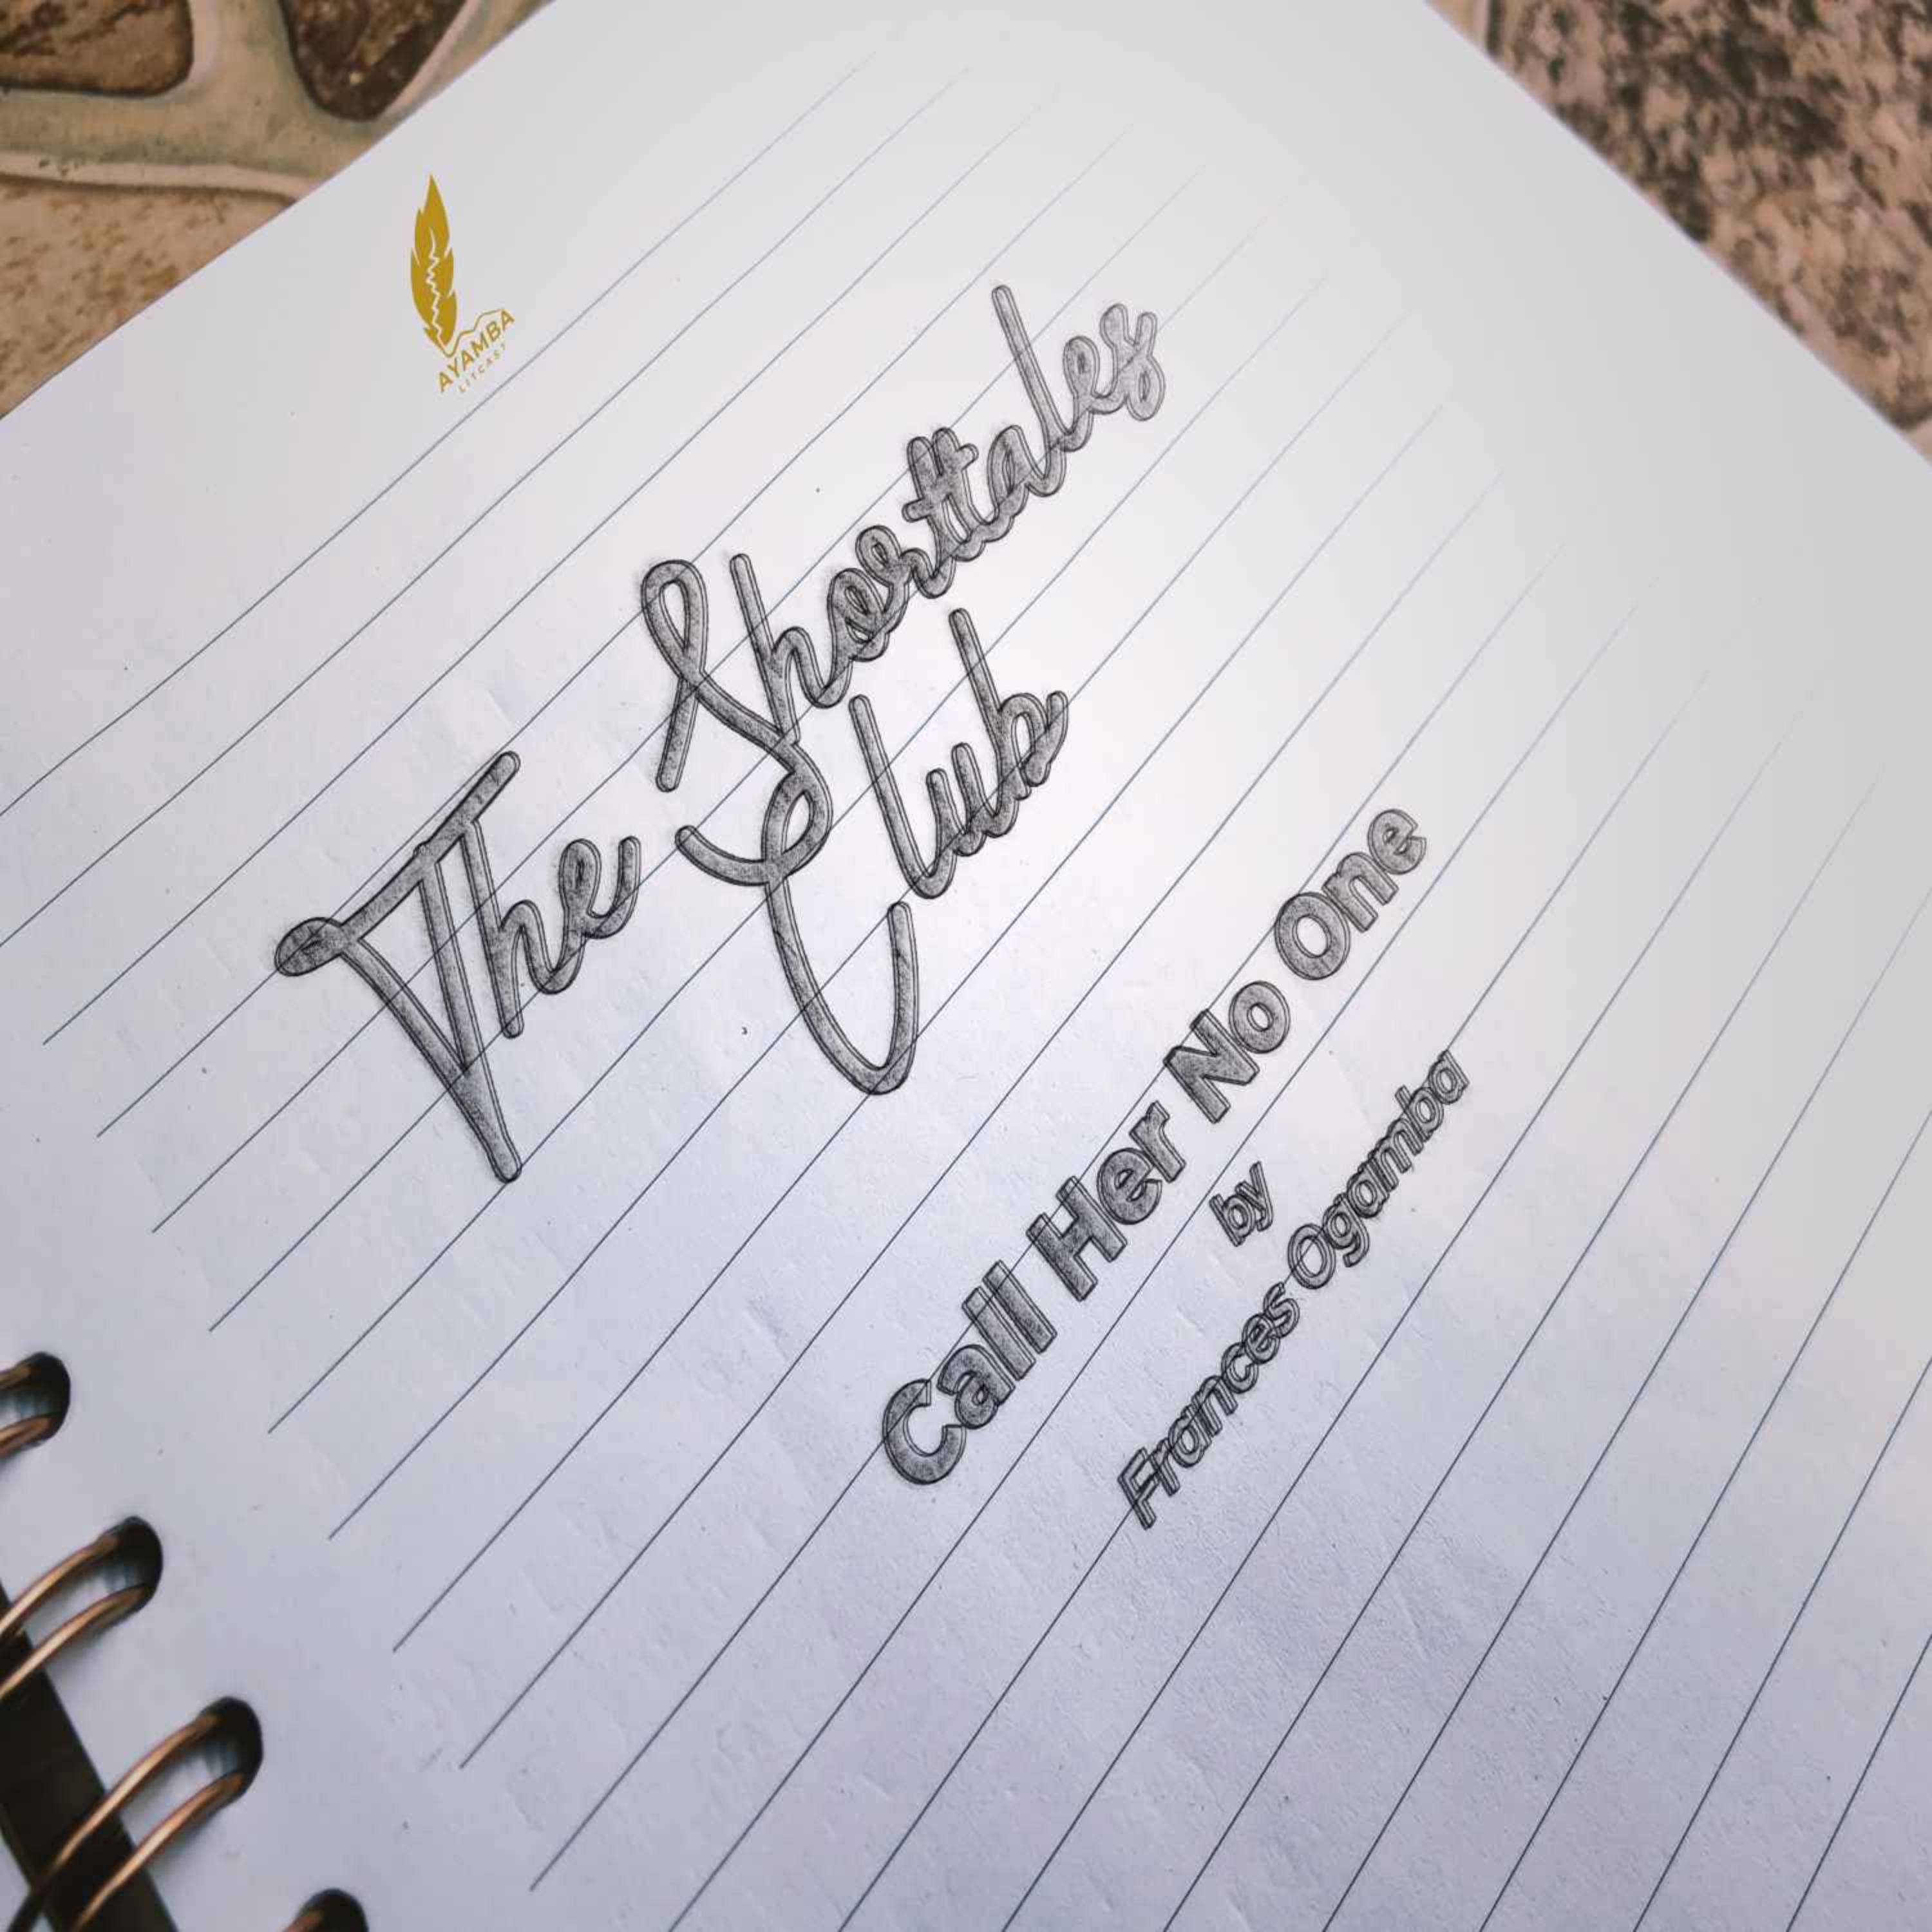 AYAMBA
LITCAST
The Shorttales
Club
Call Her No One
by
Frances Ogamba